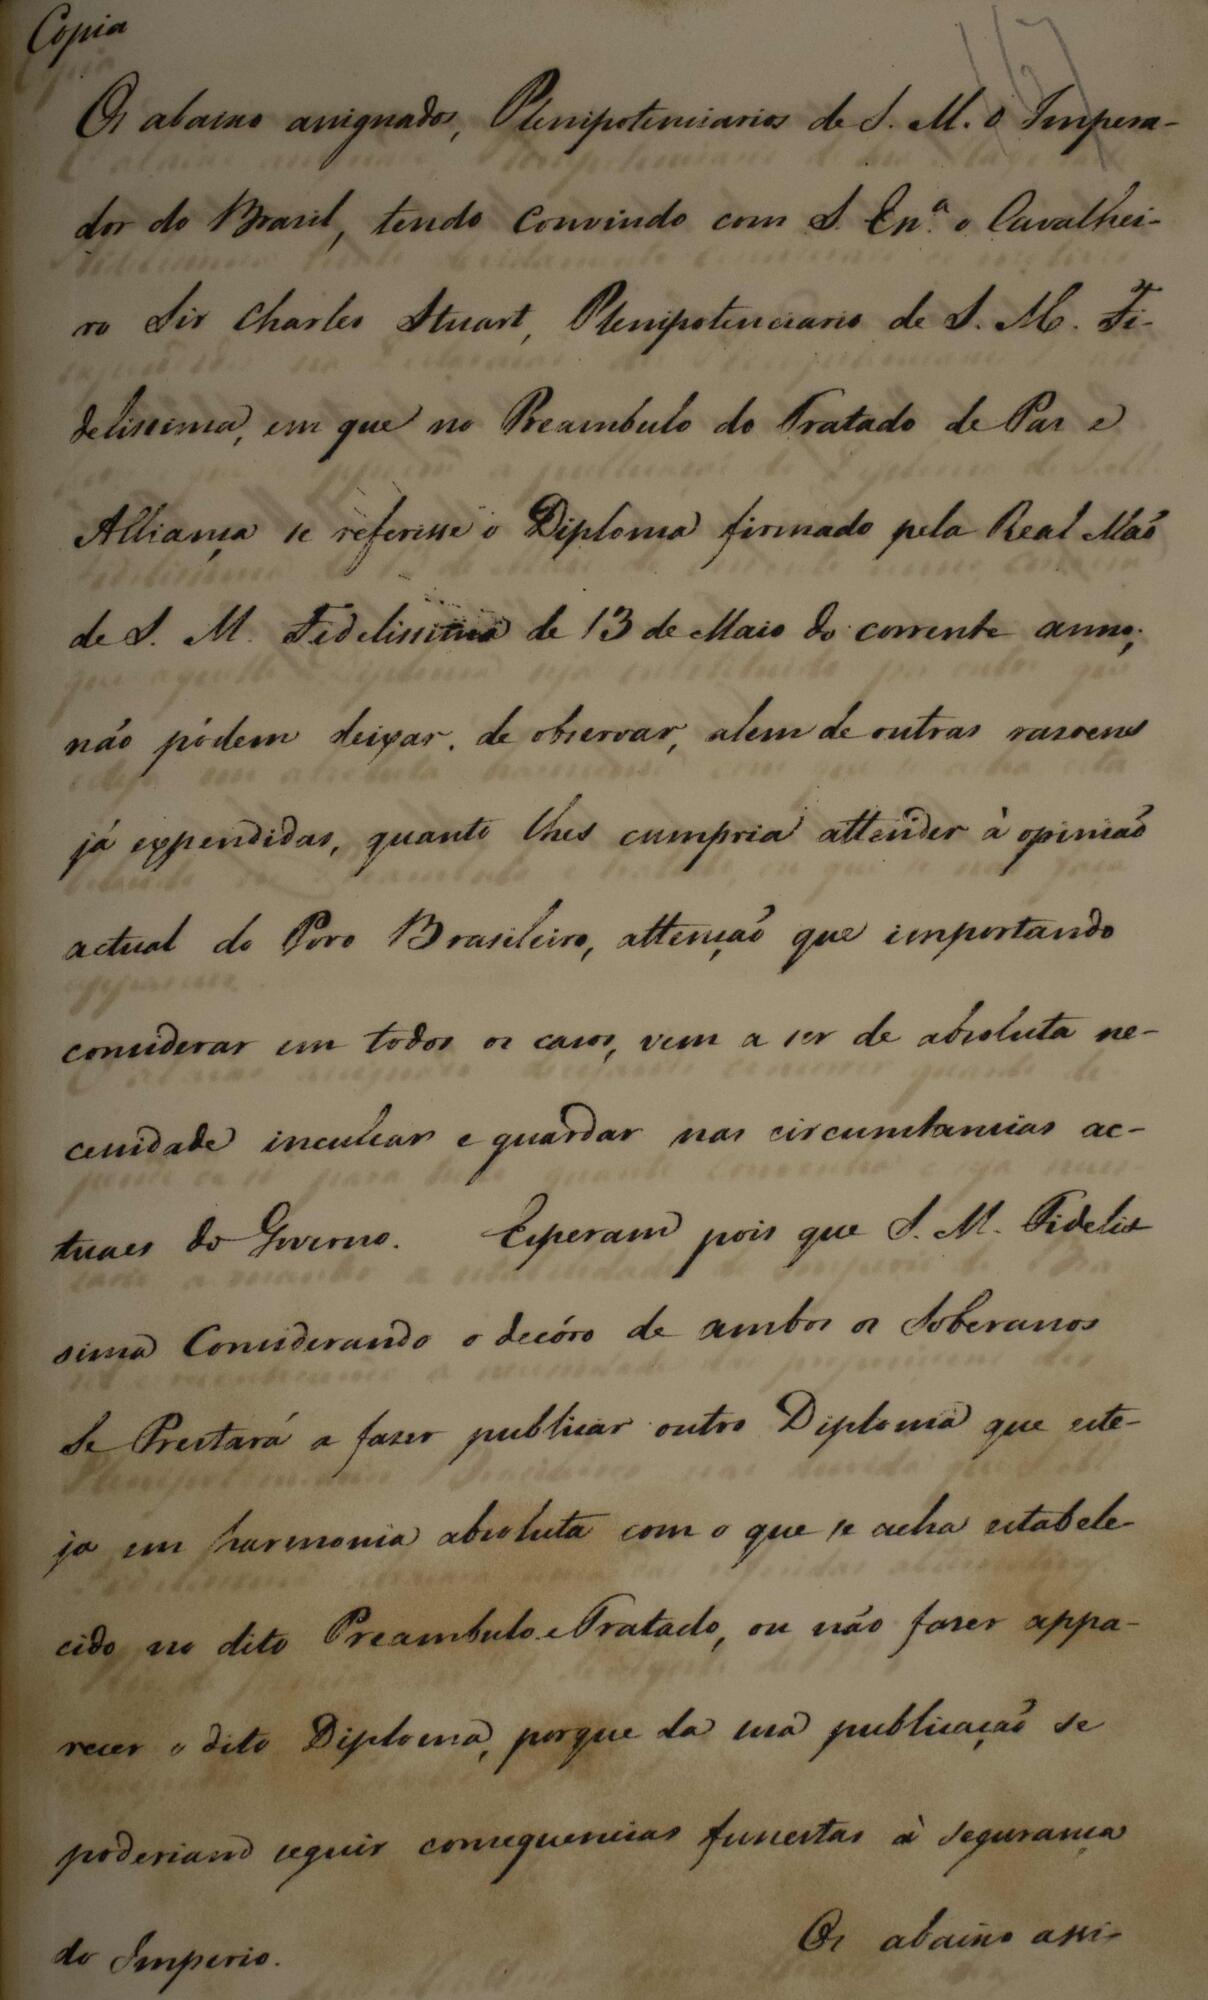 Copia
Os abaixo assignados, Plenipotenciarios de S. M. O Impera-
dor do Brasil, tendo convindo com S. Exª. o Cavalhei-
ro Sir Charles Stuart, Plenipotenciario de S. M. Fi-
delissima, em que no Preambulo do Tratado de Paz e
Alliança se referisse o Diploma firmado pela Real Mão
de S. M. Fidelissima de 13 de Maio do corrente anno;
não pódem deixar de observar, alem de outras rasoens
já expendidas, quanto lhes cumpria attender à opinião
actual do Povo Brasileiro, attenção que importando
considerar em todos os casos, vem a ser de absoluta ne-
cessidade inculcar e guardar nas circumstancias ac-
tuaes do Governo. Esperam pois que S. M. Fidelis
sima Considerando o decóro de ambos os Soberanos
Se Prestará a faser publicar outro Diploma que este-
ja em harmonia absoluta com o que se acha estabele-
cido no dito Preambulo e Tratado, ou não faser appa-
recer o dito Diploma, porque da sua publicação se
poderiam seguir consequencias funestas à segurança
do Imperio. Os abaixo assi-